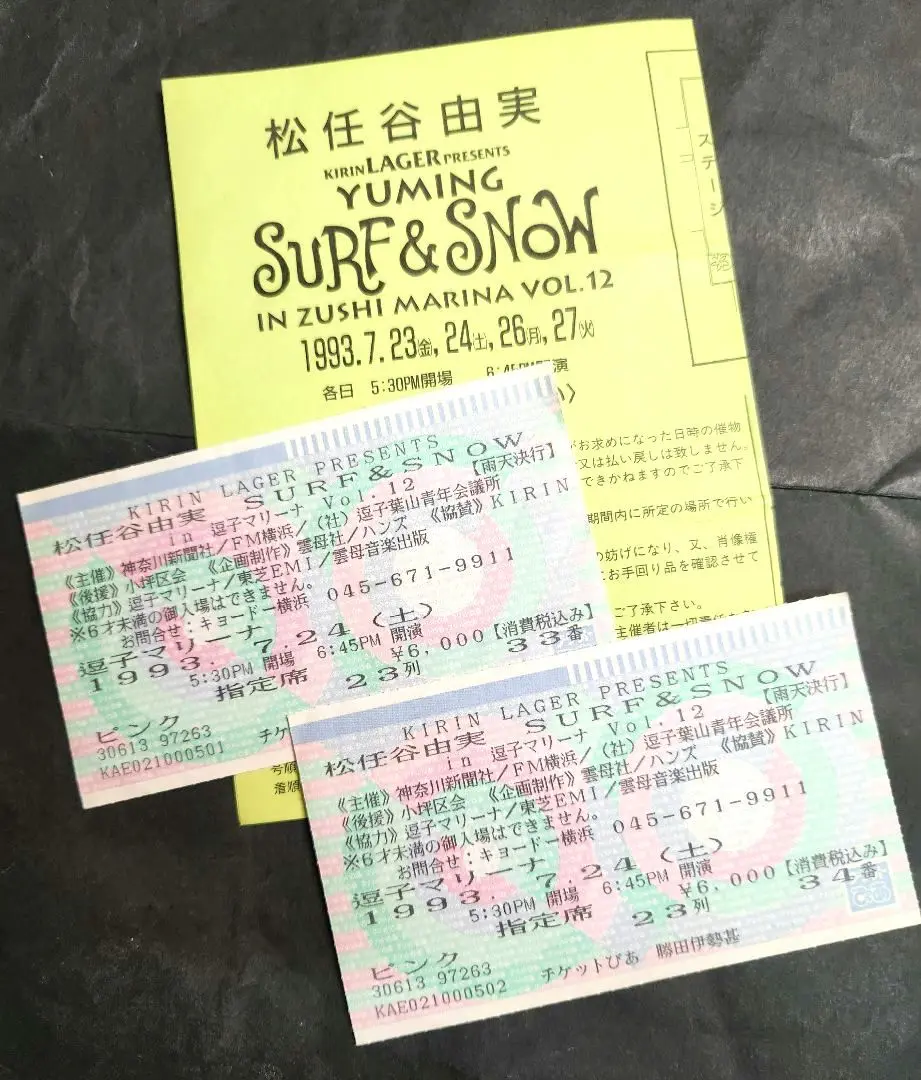 松任谷由実
KIRIN LAGER PRESENTS
YUMING
SURF & SNOW
IN ZUSHI MARINA VOL.12
1993.7.23(金), 24(土), 26(月), 27(火)
各日 5:30PM開場 6:45PM開演
ステージ
がお求めになった日時の催物
又は払い戻しは致しません。
できかねますのでご了承下
期間内に所定の場所で行い
の妨げになり、又、肖像権
にお手回り品を確認させて
ご了承下さい。
主催者は一切責任を
KIRIN LAGER PRESENTS
松任谷由実 SURF&SNOW
in 逗子マリーナ Vol.12 【雨天決行】
《主催》神奈川新聞社/FM横浜/(社)逗子葉山青年会議所
《後援》小坪区会 《企画制作》雲母社/ハンズ 《協賛》KIRIN
《協力》逗子マリーナ/東芝EMI/雲母音楽出版
※6才未満の御入場はできません。
お問合せ:キョードー横浜 045-671-9911
逗子マリーナ
1993. 7.24(土)
5:30PM 開場 6:45PM 開演
¥6,000【消費税込み】
指定席 23列 33番
ピンク
30613 97263
KAE021000501 チケ
KIRIN LAGER PRESENTS
松任谷由実 SURF&SNOW
in 逗子マリーナ Vol.12 【雨天決行】
《主催》神奈川新聞社/FM横浜/(社)逗子葉山青年会議所
《後援》小坪区会 《企画制作》雲母社/ハンズ 《協賛》KIRIN
《協力》逗子マリーナ/東芝EMI/雲母音楽出版
※6才未満の御入場はできません。
お問合せ:キョードー横浜 045-671-9911
逗子マリーナ
1993. 7.24(土)
5:30PM 開場 6:45PM 開演
¥6,000【消費税込み】
指定席 23列 34番
ピンク
30613 97263
KAE021000502 チケットぴあ 勝田伊勢甚